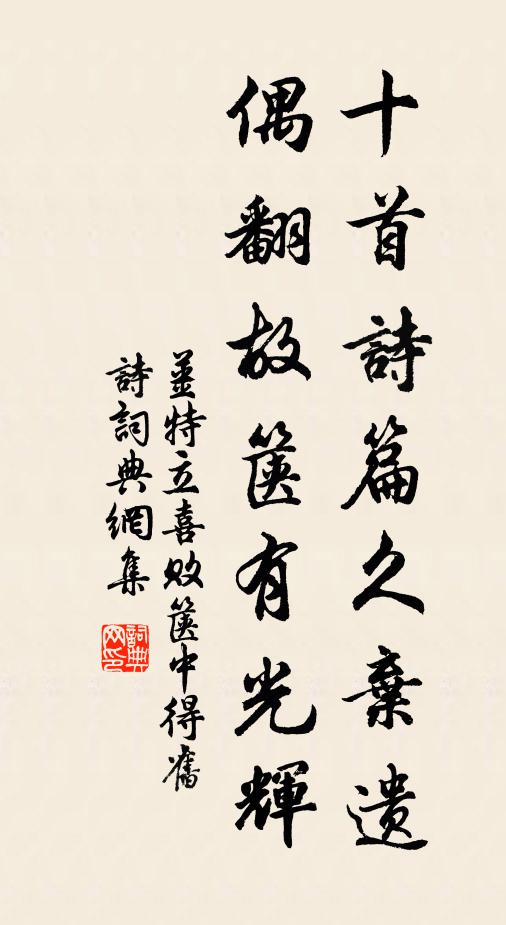 十首詩篇久棄遺
偶翻故篋有光輝
薑特立喜敗篋中得舊
詩詞典網集
詞典
网印